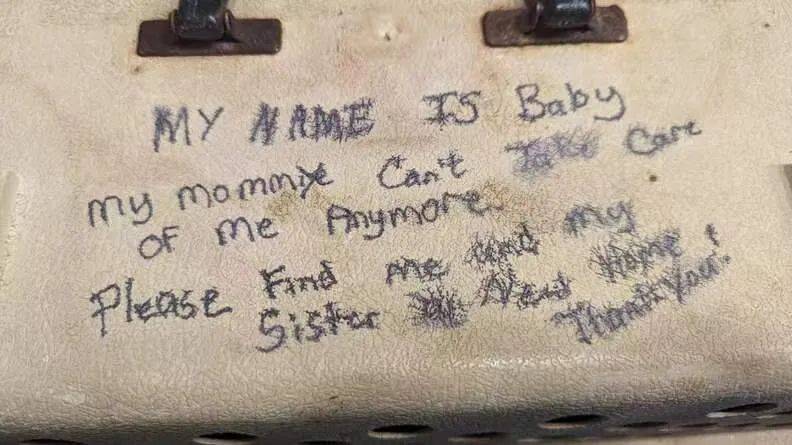 MY NAME IS Baby
My mommye Can't Take Care
of me Anymore.
Please Find me and my
Sister A New Home!
Thank you!